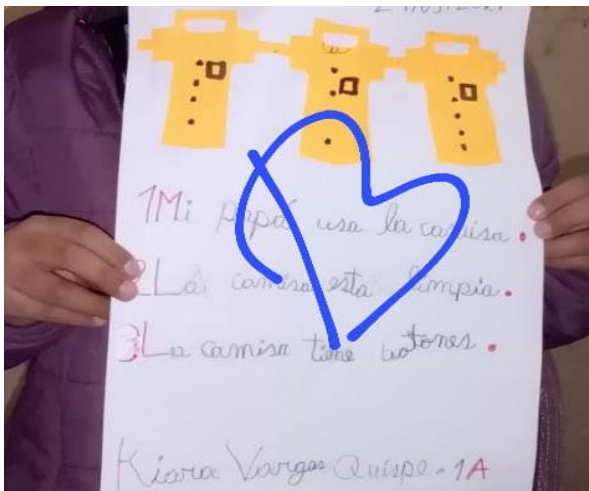 1Mi papá usa la camisa.
2La camisa esta limpia.
3La camisa tiene botones.
Kiara Vargas Quispe-1A